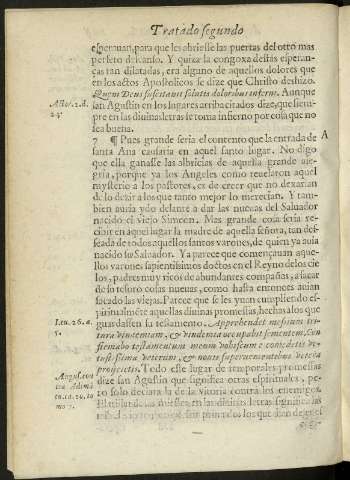 Tratado segundo
esperauan, para que les abriesse las puertas del otro mas
perfeto descanso. Y quiza la congoxa destas esperan-
ças tan dilatadas, era alguno de aquellos dolores que
en los actos Apostolicos se dize que Christo deshizo.
Quem Deus suscitauit solutis doloribus inferni. Aunque
san Agustin en los lugares arriba citados dize, que siem-
pre en las diuinas letras se toma infierno por cosa que no
sea buena.
Acto. 2. d.
24.
7 ¶ Pues grande seria el contento que la entrada de
santa Ana causaria en aquel santo lugar. No digo
que ella ganasse las albricias de aquella grande ale-
gria, porque ya los Angeles como reuelaron aquel
mysterio a los pastores, es de creer que no dexarian
de lo dezir a los que tanto mejor lo merecian. Y tam-
bien auria ydo delante a dar las nueuas del Saluador
nacido el viejo Simeon. Mas grande cosa seria re-
cibir en aquel lugar la madre de aquella señora, tan des-
seada de todos aquellos santos varones, de quien ya auia
nacido su Saluador. Ya parece que començauan aque-
llos varones sapientissimos doctos en el Reyno de los cie
los, padres muy ricos de abundantes compañas, a sacar
de su tesoro cosas nueuas, como hasta entonces auian
sacado las viejas. Parece que se les yuan cumpliendo es-
piritualmẽte aquellas diuinas promessas, hechas a los que
guardassen su testamento. Apprehendet messium tri-
tura vindemiam, & vindemia occupabit sementem. Con
firmabo testamentum meum vobiscum & comedetis ve-
tustissima veterum, & nouis superuenientibus vetera
proijcietis. Todo esse lugar de temporales promessas
dize san Agustin que significa otras espirituales, pe-
ro solo declara la de la vitoria contra los enemigos.
A
Leu. 26. a.
5.
August. con
tra Adimã
tu. ca. 24. to
mo 7.